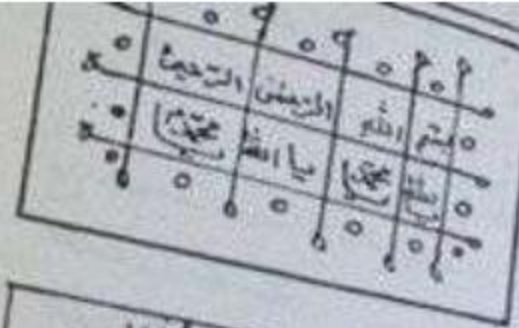 بسم الله الرحمن الرحيم
يا الله محمد يا الله محمد